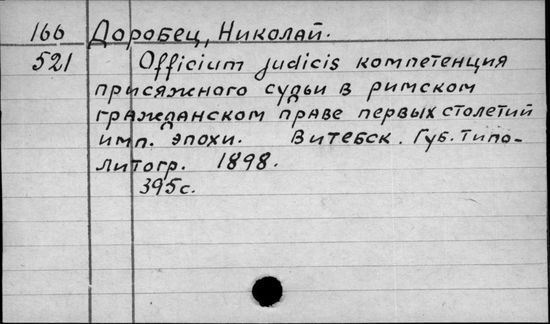 166 Доробец, Николай.
521 Officium judicis компетенция
присяжного судьи в римском
гражданском праве первых столетий
имп. эпохи. Витебск. Губ. Типо-
литогр. 1898.
395с.